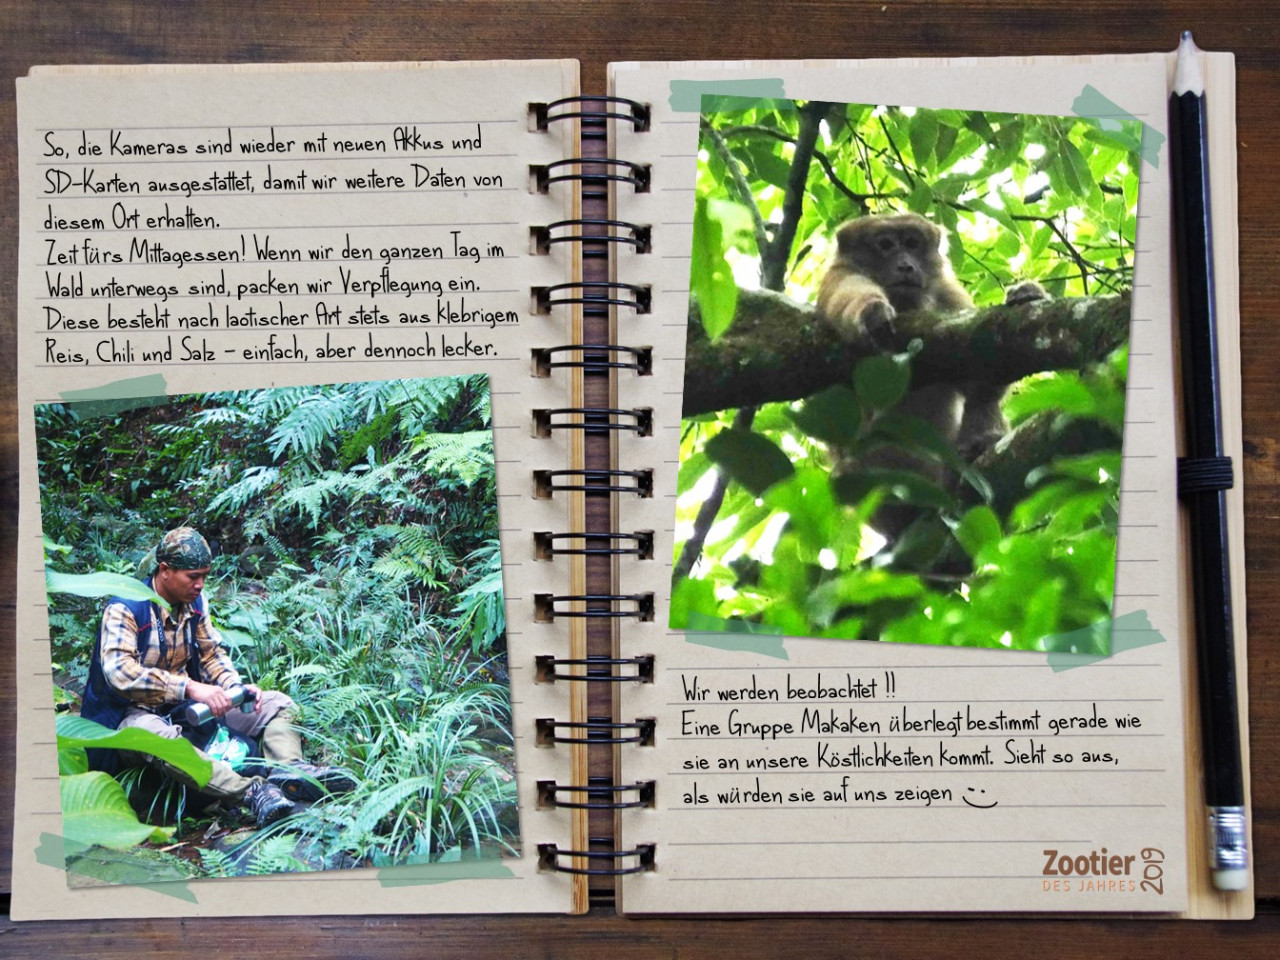 So, die Kameras sind wieder mit neuen Akkus und
SD-Karten ausgestattet, damit wir weitere Daten von
diesem Ort erhalten.
Zeit fürs Mittagessen! Wenn wir den ganzen Tag im
Wald unterwegs sind, packen wir Verpflegung ein.
Diese besteht nach laotischer Art stets aus klebrigem
Reis, Chili und Salz - einfach, aber dennoch lecker.
Wir werden beobachtet !!
Eine Gruppe Makaken überlegt bestimmt gerade wie
sie an unsere Köstlichkeiten kommt. Sieht so aus,
als würden sie auf uns zeigen
Zootier
DES JAHRES
2019